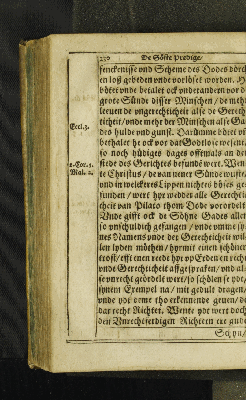 230 De Söste Predige/
fencknisse vnd Scheme des Dodes dörch
en loß gebeden vnde vorlöset worden. H
bötet vnde betalet ock vnderandern vor d
grote Sünde disser Minschen / de meth
leuen de vngerechticheit alse de Gerech
ticheit/ vnde mehr der Minschen alse Ga
Eccl.3. des hulde vnd gunst. Darümme bötet vn
bethalet he ock vor dat Godtlose
so noch hüdiges dages offtmals an der
stede des Gerichtes befunden wert. Wen
te Christus / de van nener Sünde wuste/
vnd in welckeres Lippen nichtes böses ge
Mal. 2. funden / wert hyr wedder alle Gerechti
cheit van Pilato thom Dode vorordelt
Vnde gifft ock de Söhne Gades allet
so vnschüldich gefangen / vnde vmme sy
nes Namens vnde der Gerechticheit wil
len lyden möthen / hyrmit einen schönen
trost/ efft enen rede hyr vp Erden en recht
vnde Gerechticheit affgespraken/ vnd als
se vnrecht geördelt wert/ so schölen se vp
synem Exempel na / mit gedult dragen/
vnde ydt eme tho erkennende geuen/ de
dar recht Richtet. Wente ydt wert doch
den Vnrechtferdigen Richteren